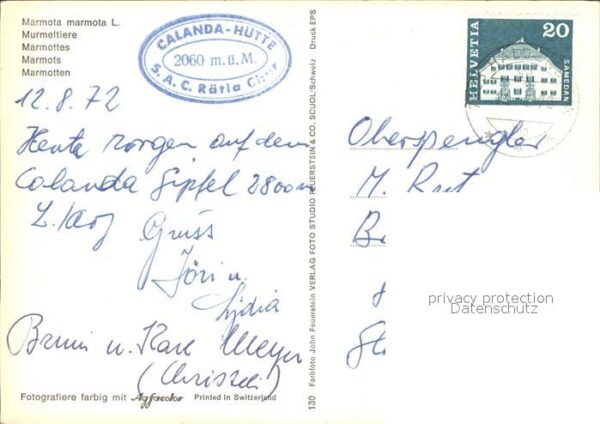 Marmota marmota L.
Murmeltiere
Marmottes
Marmots
Marmotten
CALANDA-HÜTTE
2060 m.ü.M.
S. A. C. Rätia Chur
12.8.72
Heute morgen auf dem
Calanda Gipfel 2800m
Gruss
Jöri u.
Lydia
Bruni u. Karl Meyer
Fotografiere farbig mit Agfacolor Printed in Switzerland
130 Farbfoto John Feuerstein VERLAG FOTO STUDIO FEUERSTEIN & CO. SCUOL/Schweiz Druck EPS
HELVETIA
20
SAMEDAN
Oberspengler
M.
privacy protection
Datenschutz